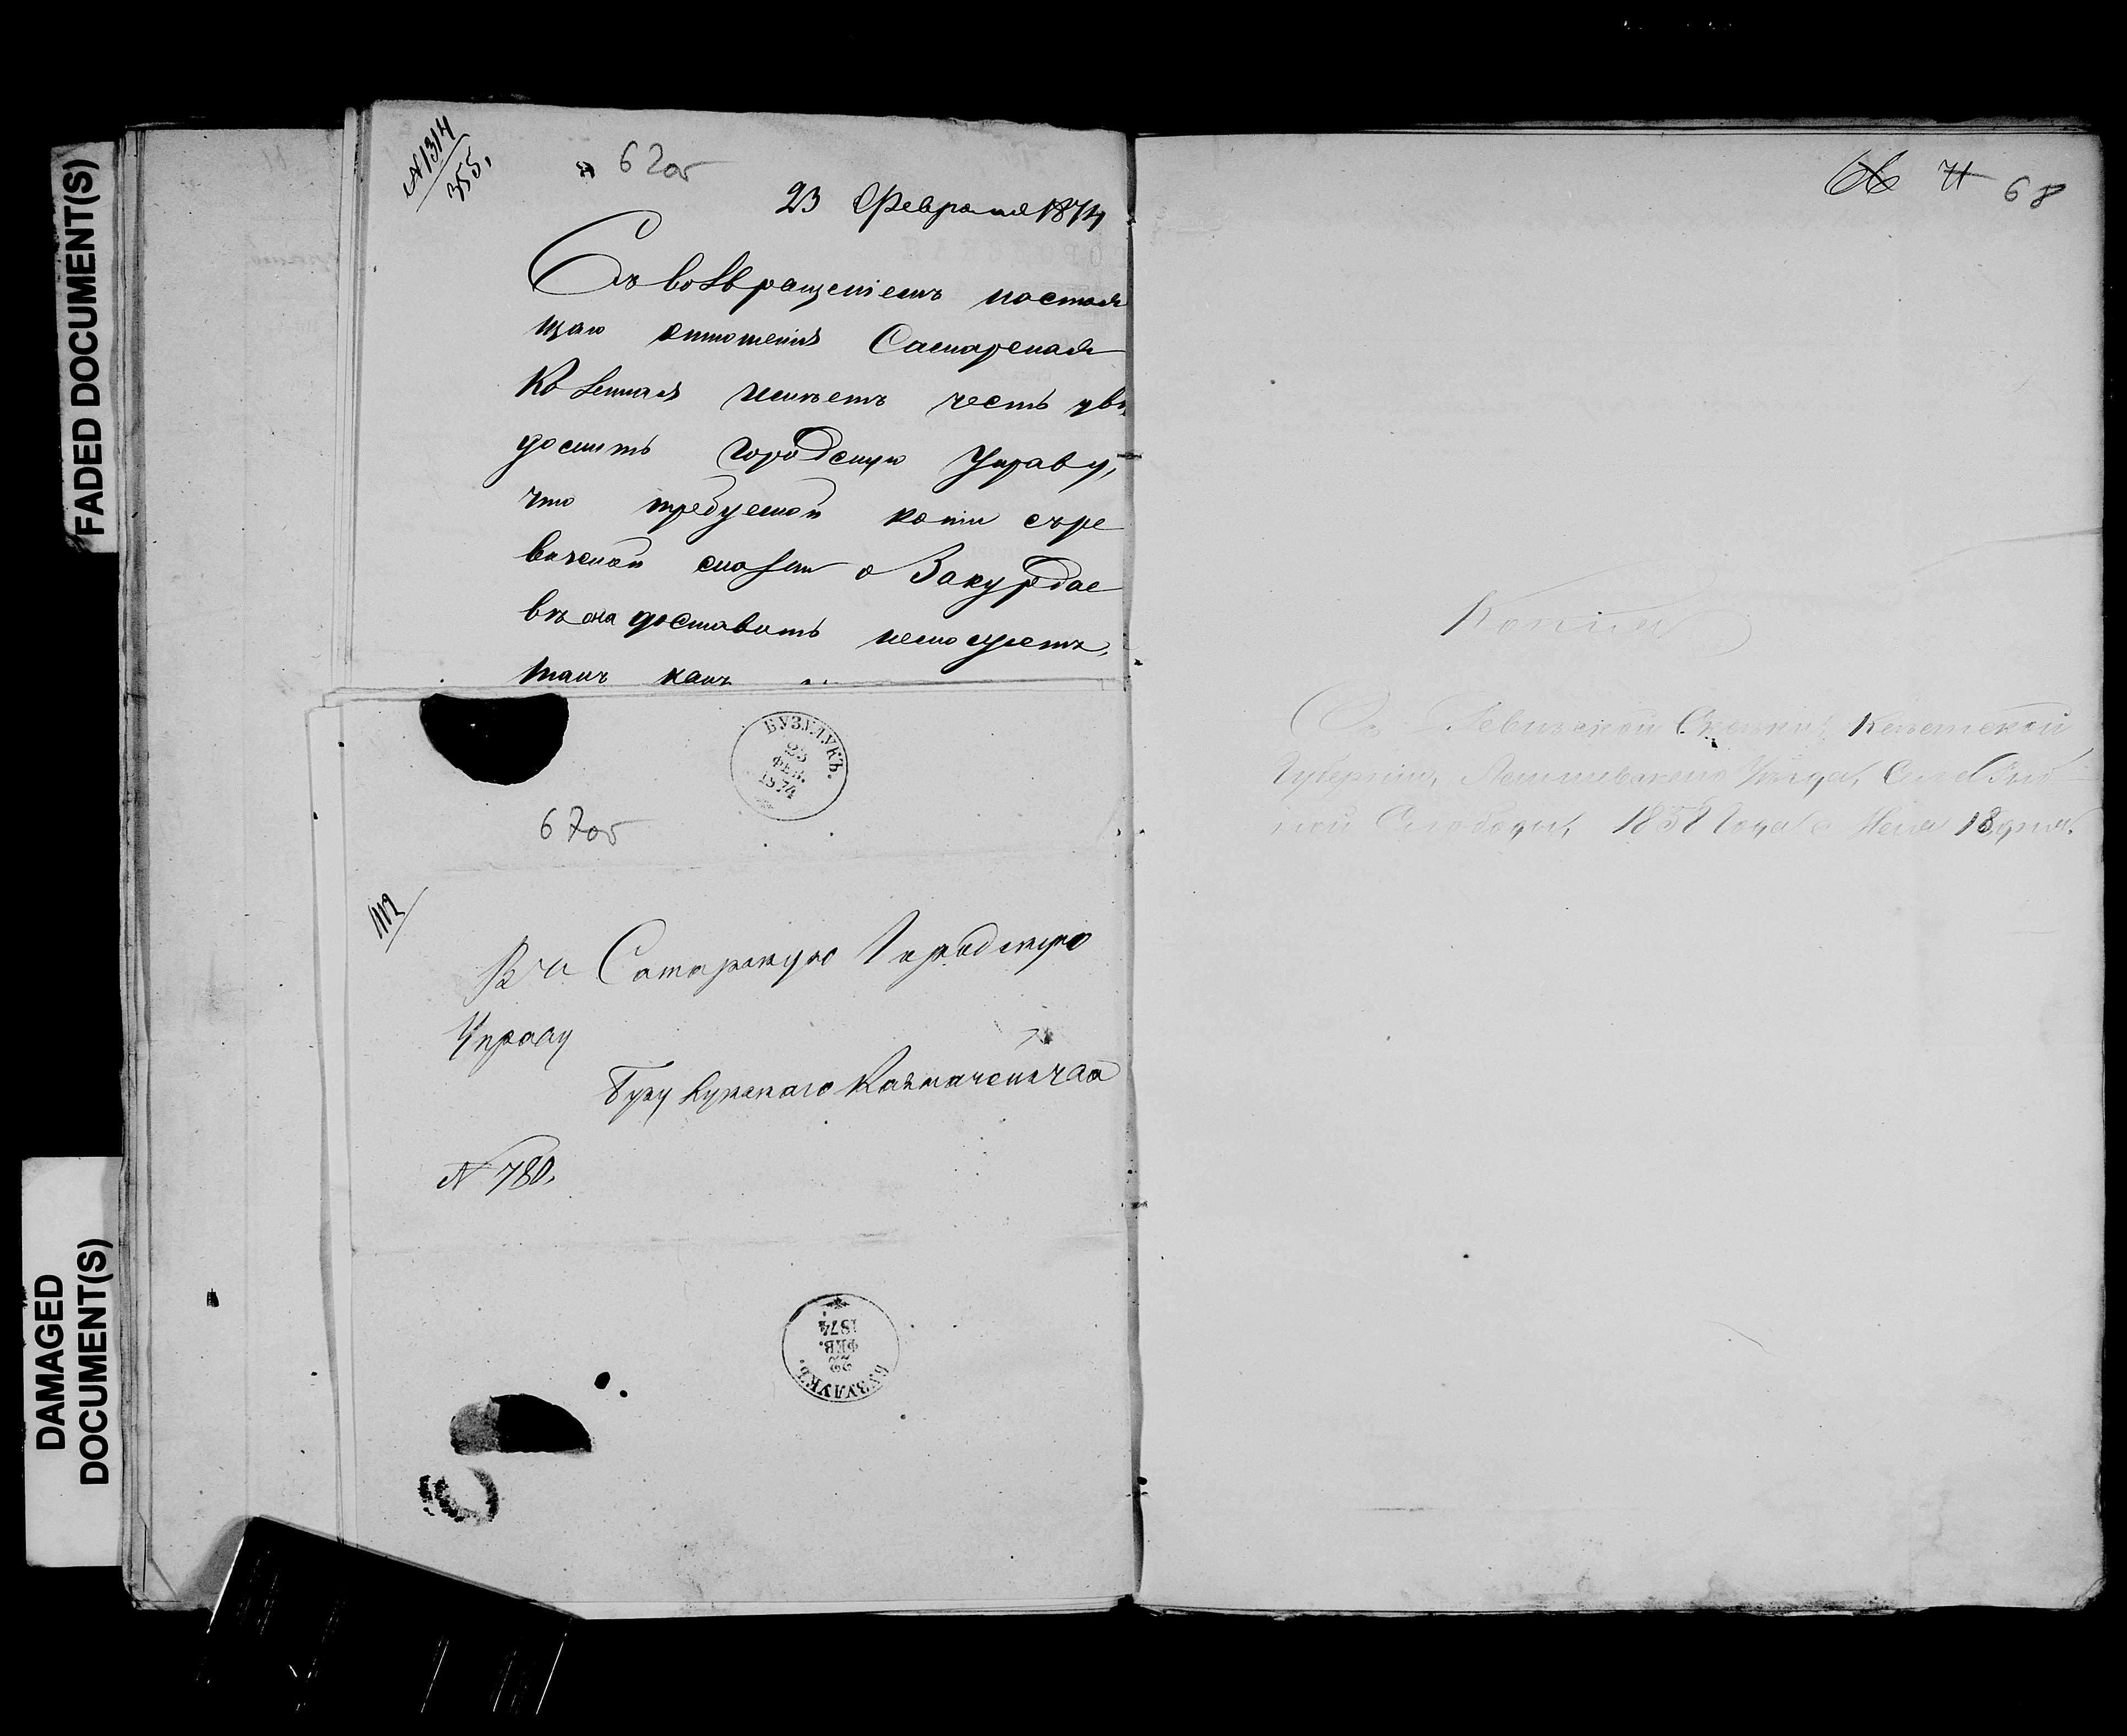 FADED DOCUMENT(S)
DAMAGED
DOCUMENT(S)
№ 1314
355.
62об
23 Февраля 1874
Съ возвращеніемъ настоя
щаго отношенія Самарская
Казенная имѣетъ честь увѣ
домить Городскую Управу,
что требуемой копіи съ ре
визской сказки о Закурдае
вѣ она доставить не можетъ,
такъ какъ
БУЗУЛУКЪ.
23
ФЕВ.
1874
67об
1112
Въ Самарскую Городскую
Управу
Бузулукскаго Казначейства
№ 780.
БУЗУЛУКЪ.
22
ФЕВ.
1874
68
Копія
Ревизской Сказки
Губерніи, Уѣзда, Села Рыб
ной Слободы, 1858 года Мая 18 дня.